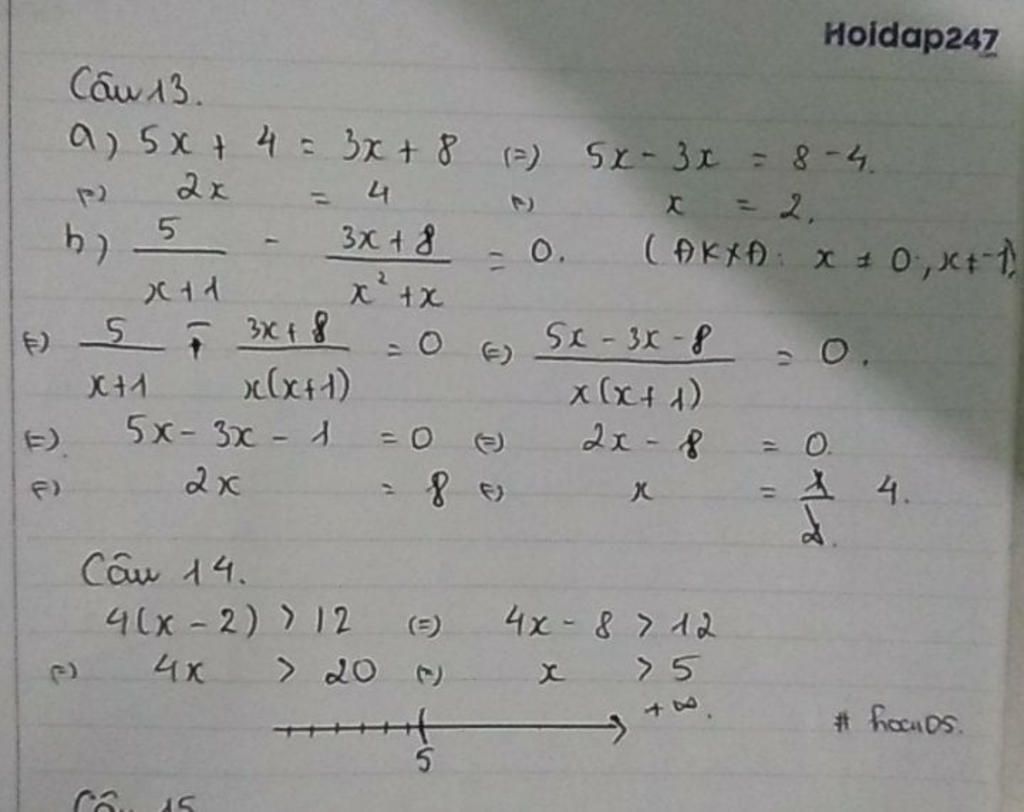 Hoidap247
Câu 13.
a) 5x + 4 = 3x + 8 (=) 5x - 3x = 8 - 4.
(=) 2x = 4 (=) x = 2.
b) 5/(x+1) - (3x+8)/(x²+x) = 0. (ĐKXĐ: x ≠ 0, x ≠ -1)
(=) 5/(x+1) - (3x+8)/(x(x+1)) = 0 (=) (5x - 3x - 8)/(x(x+1)) = 0.
(=). 5x - 3x - 1 = 0 (=) 2x - 8 = 0.
(=) 2x = 8 (=) x = 4.
Câu 14.
4(x - 2) > 12 (=) 4x - 8 > 12
(=) 4x > 20 (=) x > 5
+∞.
5
Câu 15